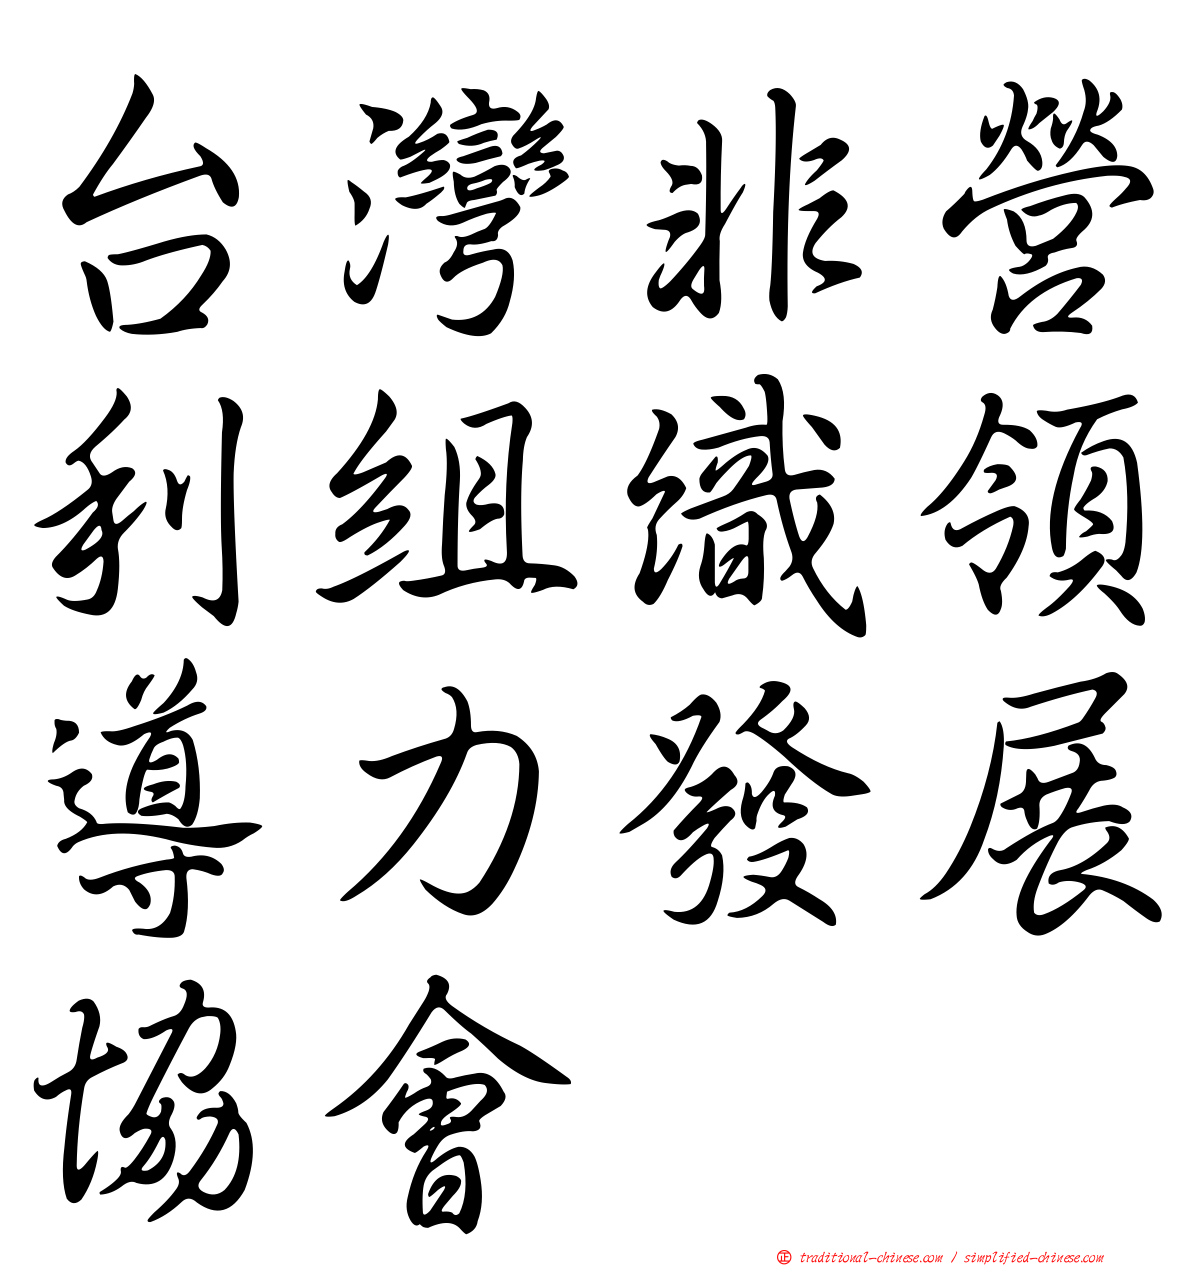 台灣非營
利組織領
導力發展
協會
㊣ traditional-chinese.com / simplified-chinese.com